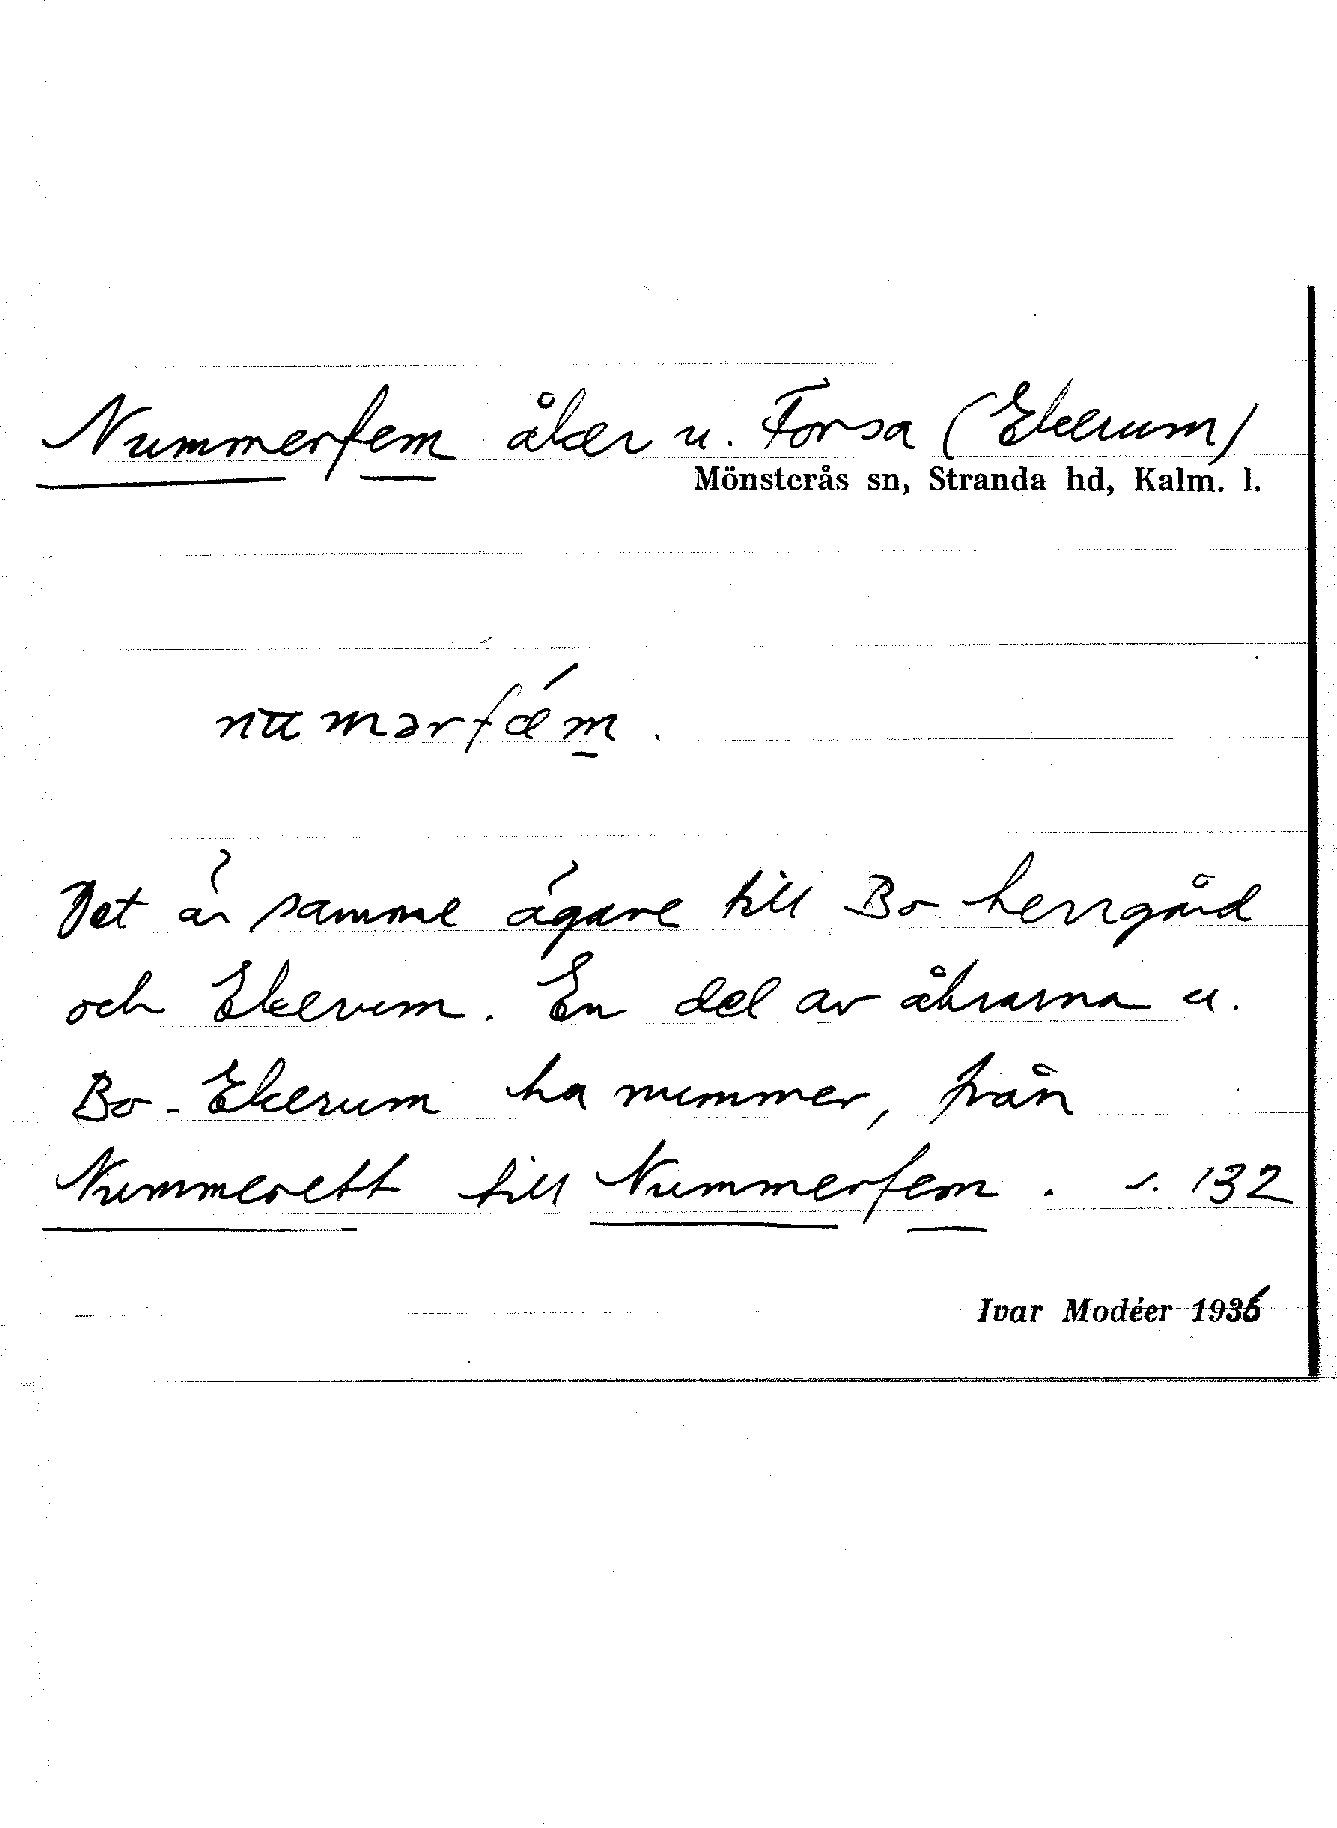 Nummerfem åker u. Forsa (Ekerum)
Mönsterås sn, Stranda hd, Kalm. l.
numərfǽm.
Det är samme ägare till Bo herrgård
och Ekerum. En del av åkrarna u.
Bo-Ekerum ha nummer, från
Nummerett till Nummerfem. s. 132
Ivar Modéer 1936